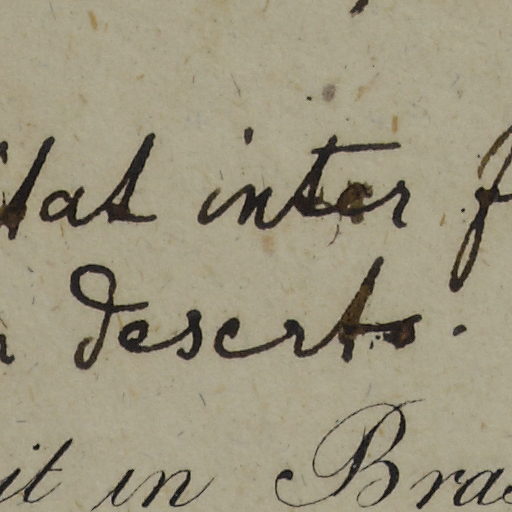 itat inter f
deserto.
it in Bras